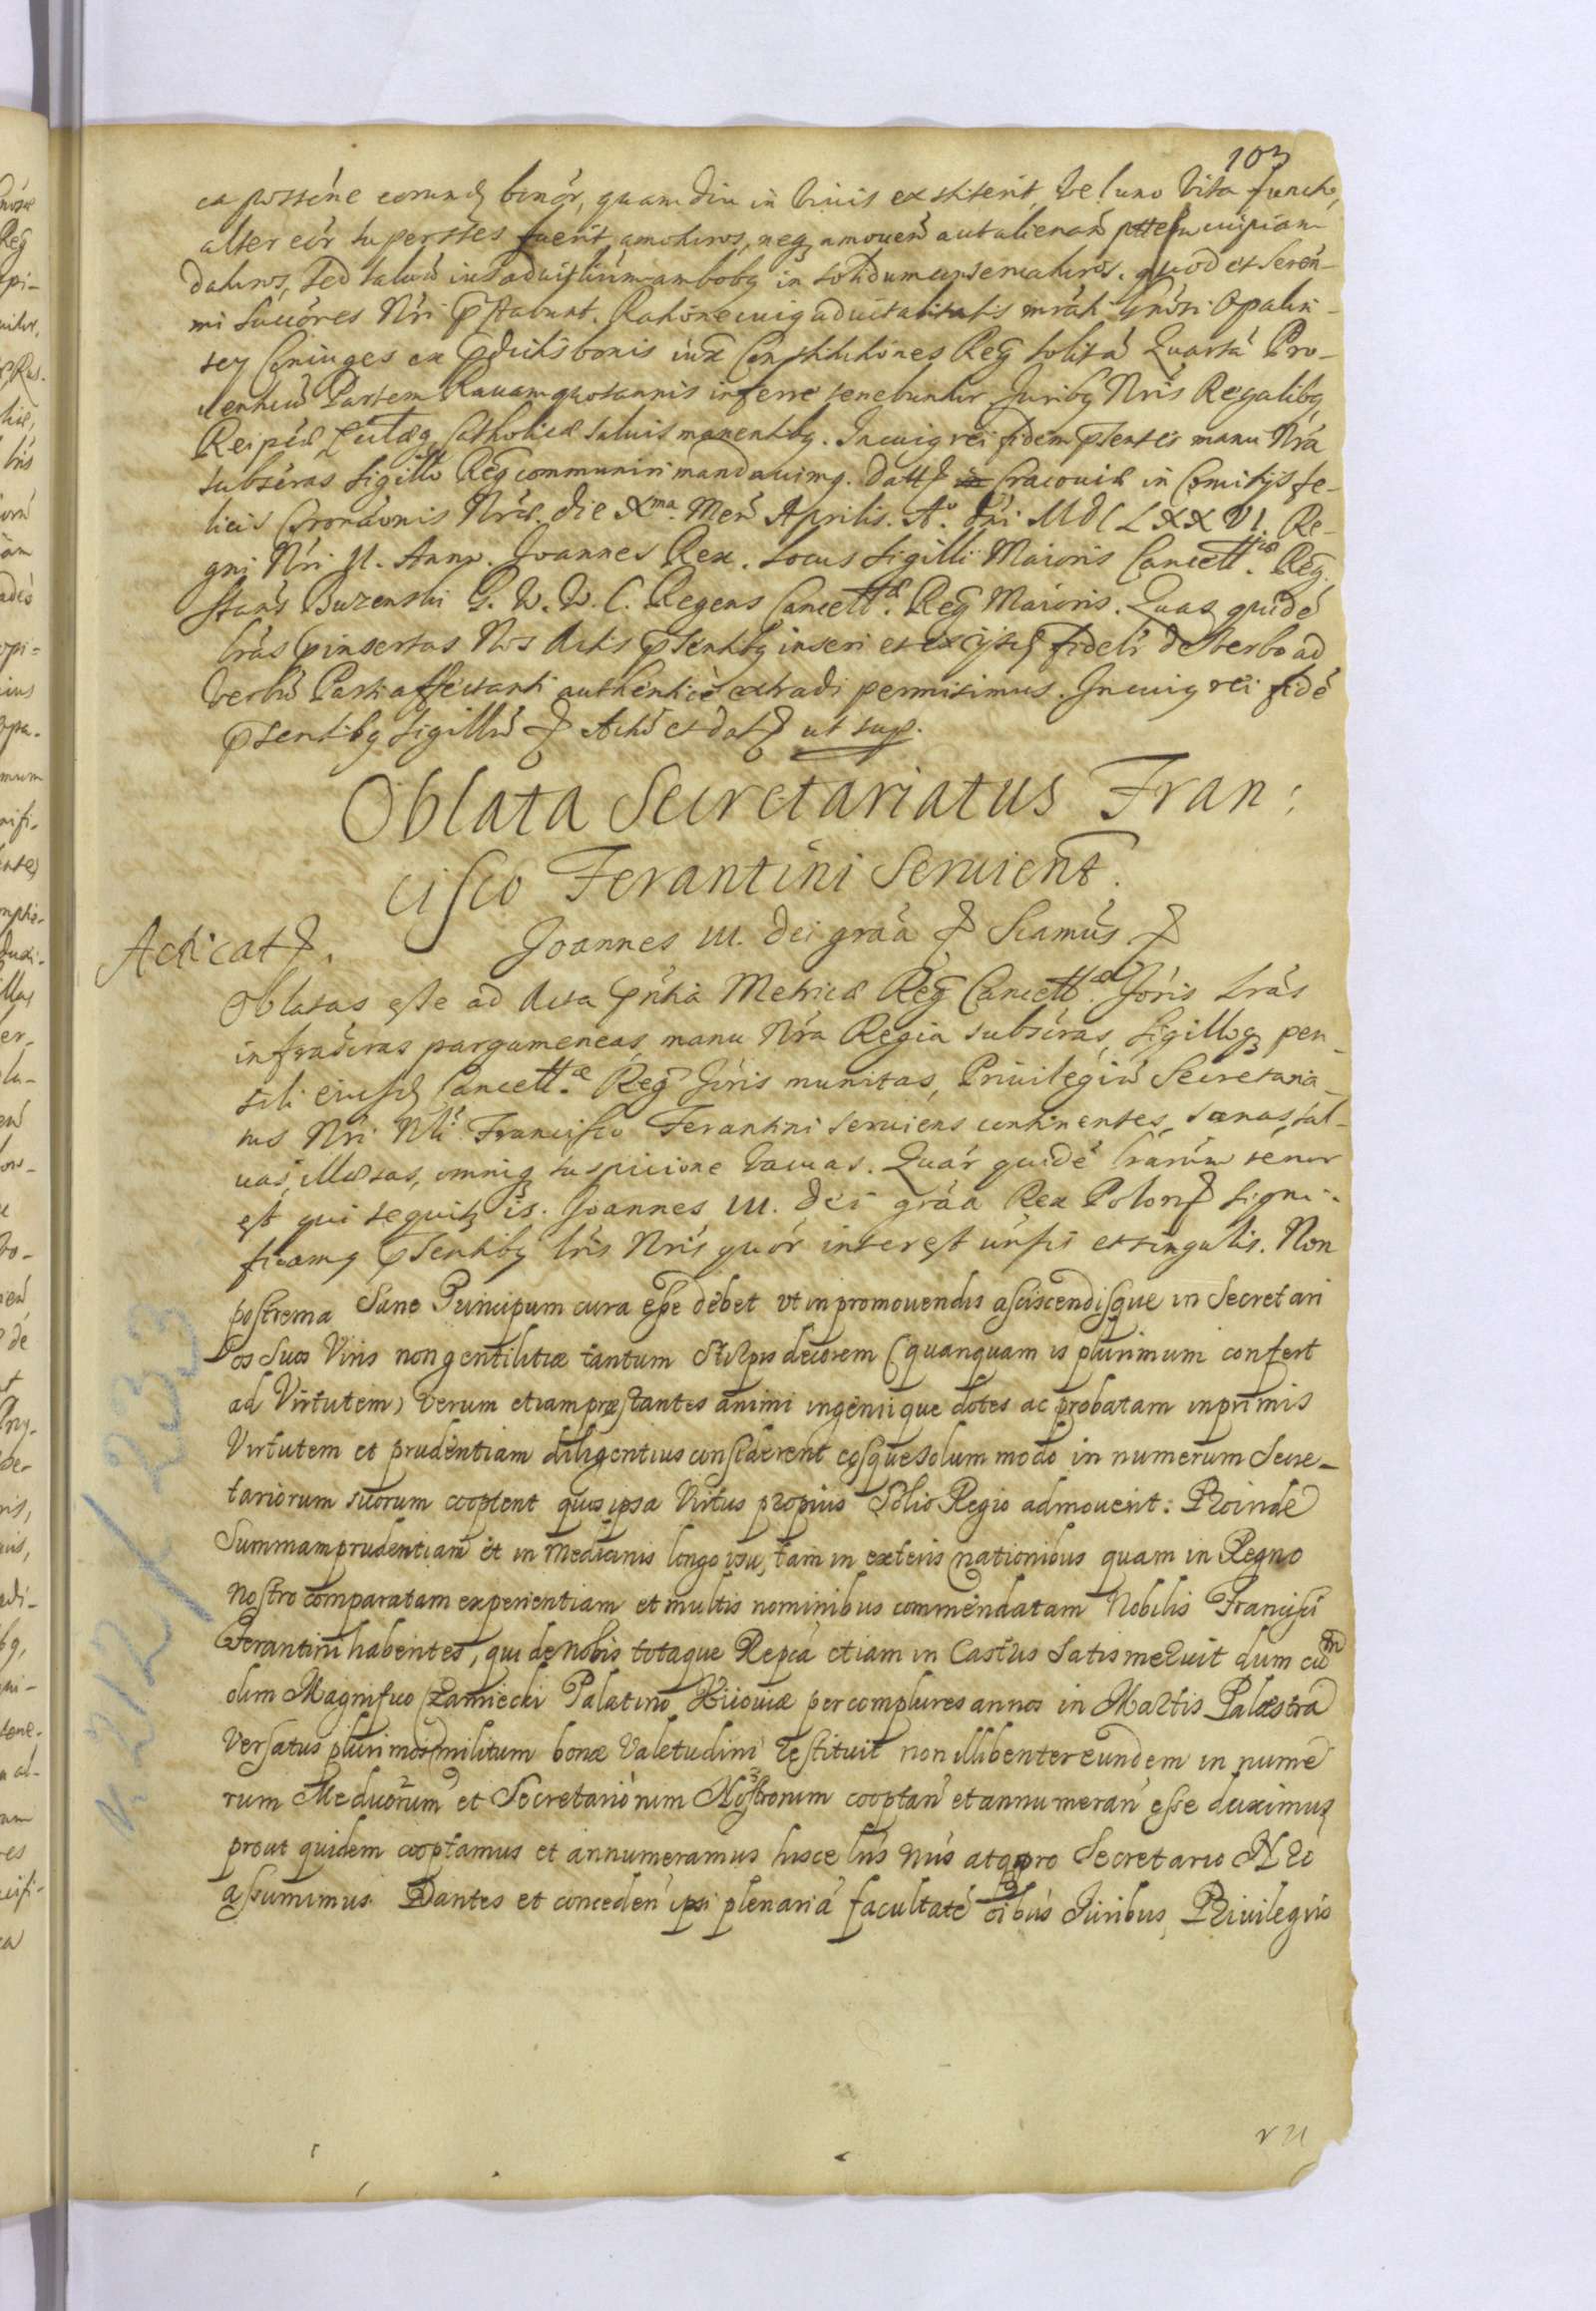 103
ea possione eorund bonor, quamdiu in vivis exstiterit, vel uno vita functo,
alter eor superstes fuerit, amoturos, neq amovend aut alienand ptte cuipiam
daturos, sed salvu ius advitalium ambobq in solidum conservaturos. quod et Seren-
mi Succores Nri pstabunt. Ratione cuiq advitalitatis mrati Gnosi Opalin-
scy Coniuges ex pdictis bonis iuxa Constitutiones Regni solita Quarta Pro-
ventuu Partem Ravam quotannis inferre tenebuntur Juribq Nris Regalibq,
Reipcae Eccliaeq Catholicae salvis manentibq. In cuiq rei fidem psentes manu Nra
subscras Sigillo Reg communiri mandavimq. Datt Cracoviae in Comitijs fe-
licis Coronaonis Nrae die Xma. Men Aprilis. Ao. Dni MDCLXXVI. Re-
gni Nri II. Anno. Joannes Rex. Locus Sigilli Maioris Cancell. Reg
Stans Buzenski G. D. W. C. Regens Cancellae Reg Maioris. Quas quide
lras pinsertas Nos Actis psentibq inseri et excipi fideli de verbo ad
verbu Parti affectanti authentice extradi permisimus. In cuiq rei fide
psentibq Sigillu Actu et dat ut sup.
Oblata Secretariatus Fran:
cisco Ferantini Servient.
Acticat. Joannes III. Dei graa Sciamus
Oblatas esse ad Acta pntia Metricae Reg Cancellae Joris Lras
infrascras pargameneas, manu Nra Regia subscras, Sigilloq pen-
sili eiusd Cancellae Reg Joris munitas, Privilegiu Secretaria-
tus Nri Nli Francisco Ferantini serviens continentes, sanas, sal-
vas, illaesas, omniq suspicione vacuas. Quar quide lrarum tenor
est qui sequitur is. Joannes III. Dei graa Rex Polon Signi-
ficamq psentibq lris Nris quor interest unsis et singulis. Non
postrema Sane Principum cura esse debet ut in promovendis asciscendisque in Secretari
os Suos Viris non gentilitiae tantum Stirpis decorem (quanquam is plurimum confert
ad Virtutem) verum etiam praestantes animi ingeniique dotes ac probatam inprimis
Virtutem et prudentiam diligentius considerent eosque solum modo in numerum Secre-
tariorum suorum cooptent quos ipsa Virtus propius Solio Regio admoverit: Proinde
Summam prudentiam et in Medicinis longo usu, tam in exteris nationibus quam in Regno
nostro comparatam experientiam et multis nominibus commendatam Nobilis Francisci
Ferantini habentes, qui de Nobis totaque Repca etiam in Castris Satis meruit dum cum
olim Magnifico Czarniecki Palatino Kiioviae per complures annos in Martis Palaestra
versatus plurimos militum bonae Valetudini restituit non illibenter eundem in nume
rum Medicorum et Secretariorum Nostrorum cooptan et annumeran esse duximus
prout quidem cooptamus et annumeramus hisce lris nris atq pro Secretario Nro
assumimus Dantes et conceden ipsi plenaria facultate oibus Juribus, Privilegiis